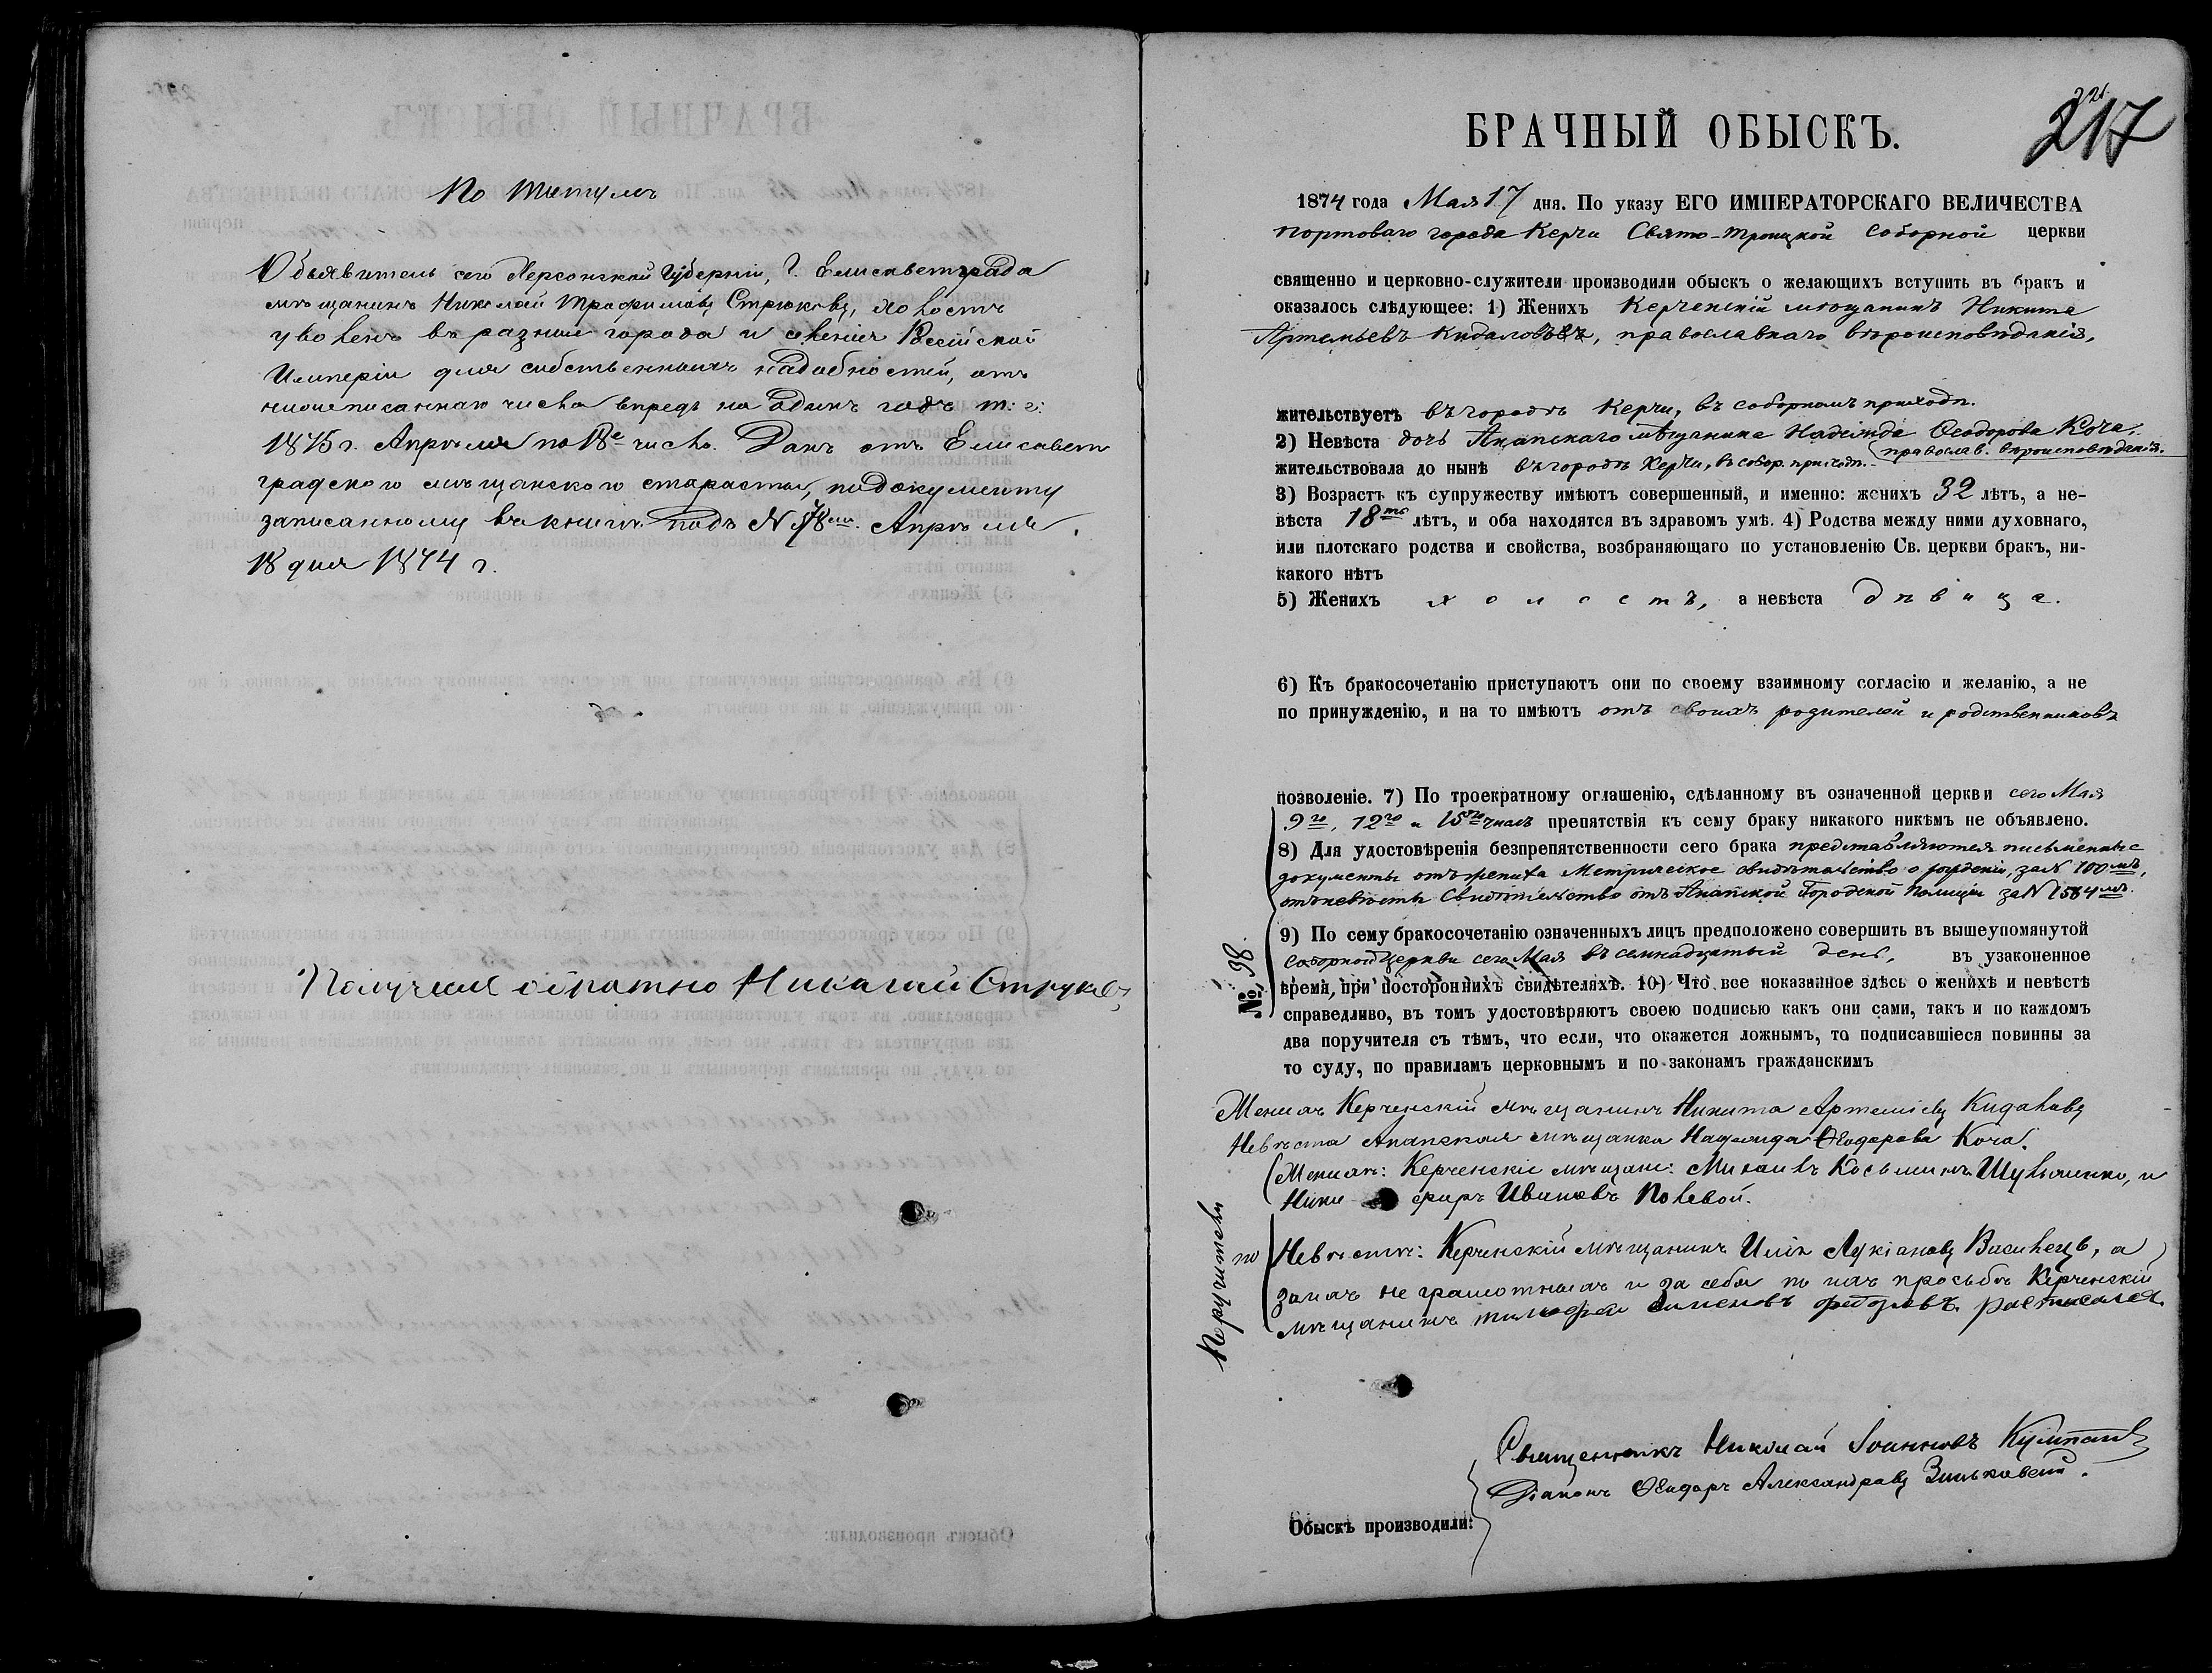 По титулъ
Объявитель сего Херсонской Губерніи, Г. Елисаветграда
мѣщанинъ Николай Трофимовъ Стрюковъ, холостъ
уволенъ въ разные города и селенія Россійской
Имперіи для собственныхъ надобностей, отъ
нижеписаннаго числа впредь на одинъ годъ т: е:
1875 г. Апрѣля по 18е число. Данъ отъ Елисавет
градскаго мѣщанскаго старосты, по документу
записанному въ книгѣ подъ N Апрѣля
18 дня 1874 г.
Получилъ обратно Николай Стрюковъ
БРАЧНЫЙ ОБЫСКЪ.
217
1874 года Мая 17 дня. По указу ЕГО ИМПЕРАТОРСКАГО ВЕЛИЧЕСТВА
портоваго города Керчи Свято-Троицкой Соборной церкви
священно и церковно-служители производили обыскъ о желающихъ вступить въ бракъ и
оказалось слѣдующее: 1) Женихъ Керченскій мѣщанинъ Никита
Артемьевъ Кидаловъ, православнаго вѣроисповѣданія,
жительствуетъ въ городѣ Керчи, въ соборномъ приходѣ.
2) Невѣста дочь Анапскаго мѣщанина Надежда Ѳеодорова Коча.
православ. вѣроисповѣданія.
жительствовала до нынѣ въ городѣ Керчи, въ собор. приходѣ.
3) Возрастъ къ супружеству имѣютъ совершенный, и именно: женихъ 32 лѣтъ, а не-
вѣста 18ть лѣтъ, и оба находятся въ здравомъ умѣ. 4) Родства между ними духовнаго,
или плотскаго родства и свойства, возбраняющаго по установленію Св. церкви бракъ, ни-
какого нѣтъ
5) Женихъ холостъ, а невѣста дѣвица.
6) Къ бракосочетанію приступаютъ они по своему взаимному согласію и желанію, а не
по принужденію, и на то имѣютъ отъ своихъ родителей и родственниковъ
позволеніе. 7) По троекратному оглашенію, сдѣланному въ означенной церкви сего Мая
9го, 12го и 15го числъ препятствія къ сему браку никакого никѣмъ не объявлено.
8) Для удостовѣренія безпрепятственности сего брака представляются письменные
документы отъ жениха Метрическое свидѣтельство о рожденіи, за N 100мъ,
отъ невѣсты Свидѣтельство отъ Анапской Городской Полиціи за N 1584мъ.
9) По сему бракосочетанію означенныхъ лицъ предположено совершить въ вышеупомянутой
соборной Церкви сего Мая въ семнадцатый день, въ узаконенное
время, при постороннихъ свидѣтеляхъ. 10) Что все показанное здѣсь о женихѣ и невѣстѣ
справедливо, въ томъ удостовѣряютъ своею подписью какъ они сами, такъ и по каждомъ
два поручителя съ тѣмъ, что если, что окажется ложнымъ, то подписавшіеся повинны за
то суду, по правиламъ церковнымъ и по законамъ гражданскимъ
№ 38.
Женихъ Керченскій мѣщанинъ Никита Артеміевъ Кидаловъ
Невѣста Анапская мѣщанка Надежда Ѳеодорова Коча.
Поручители
по
Женихѣ: Керченскіе мѣщане: Михаилъ Косьминъ Шульженко, и
Ники фиръ Ивановъ Полевой.
Невѣстѣ: Керченскій мѣщанинъ Илія Лукіановъ Василецъ, а
за нихъ не грамотныхъ и за себя по ихъ просьбѣ Керченскій
мѣщанинъ Тимофей Семеновъ росписался.
Священникъ Николай Іоанновъ
Діаконъ Ѳеодоръ Александровъ Зиньковскій.
Обыскъ производили: